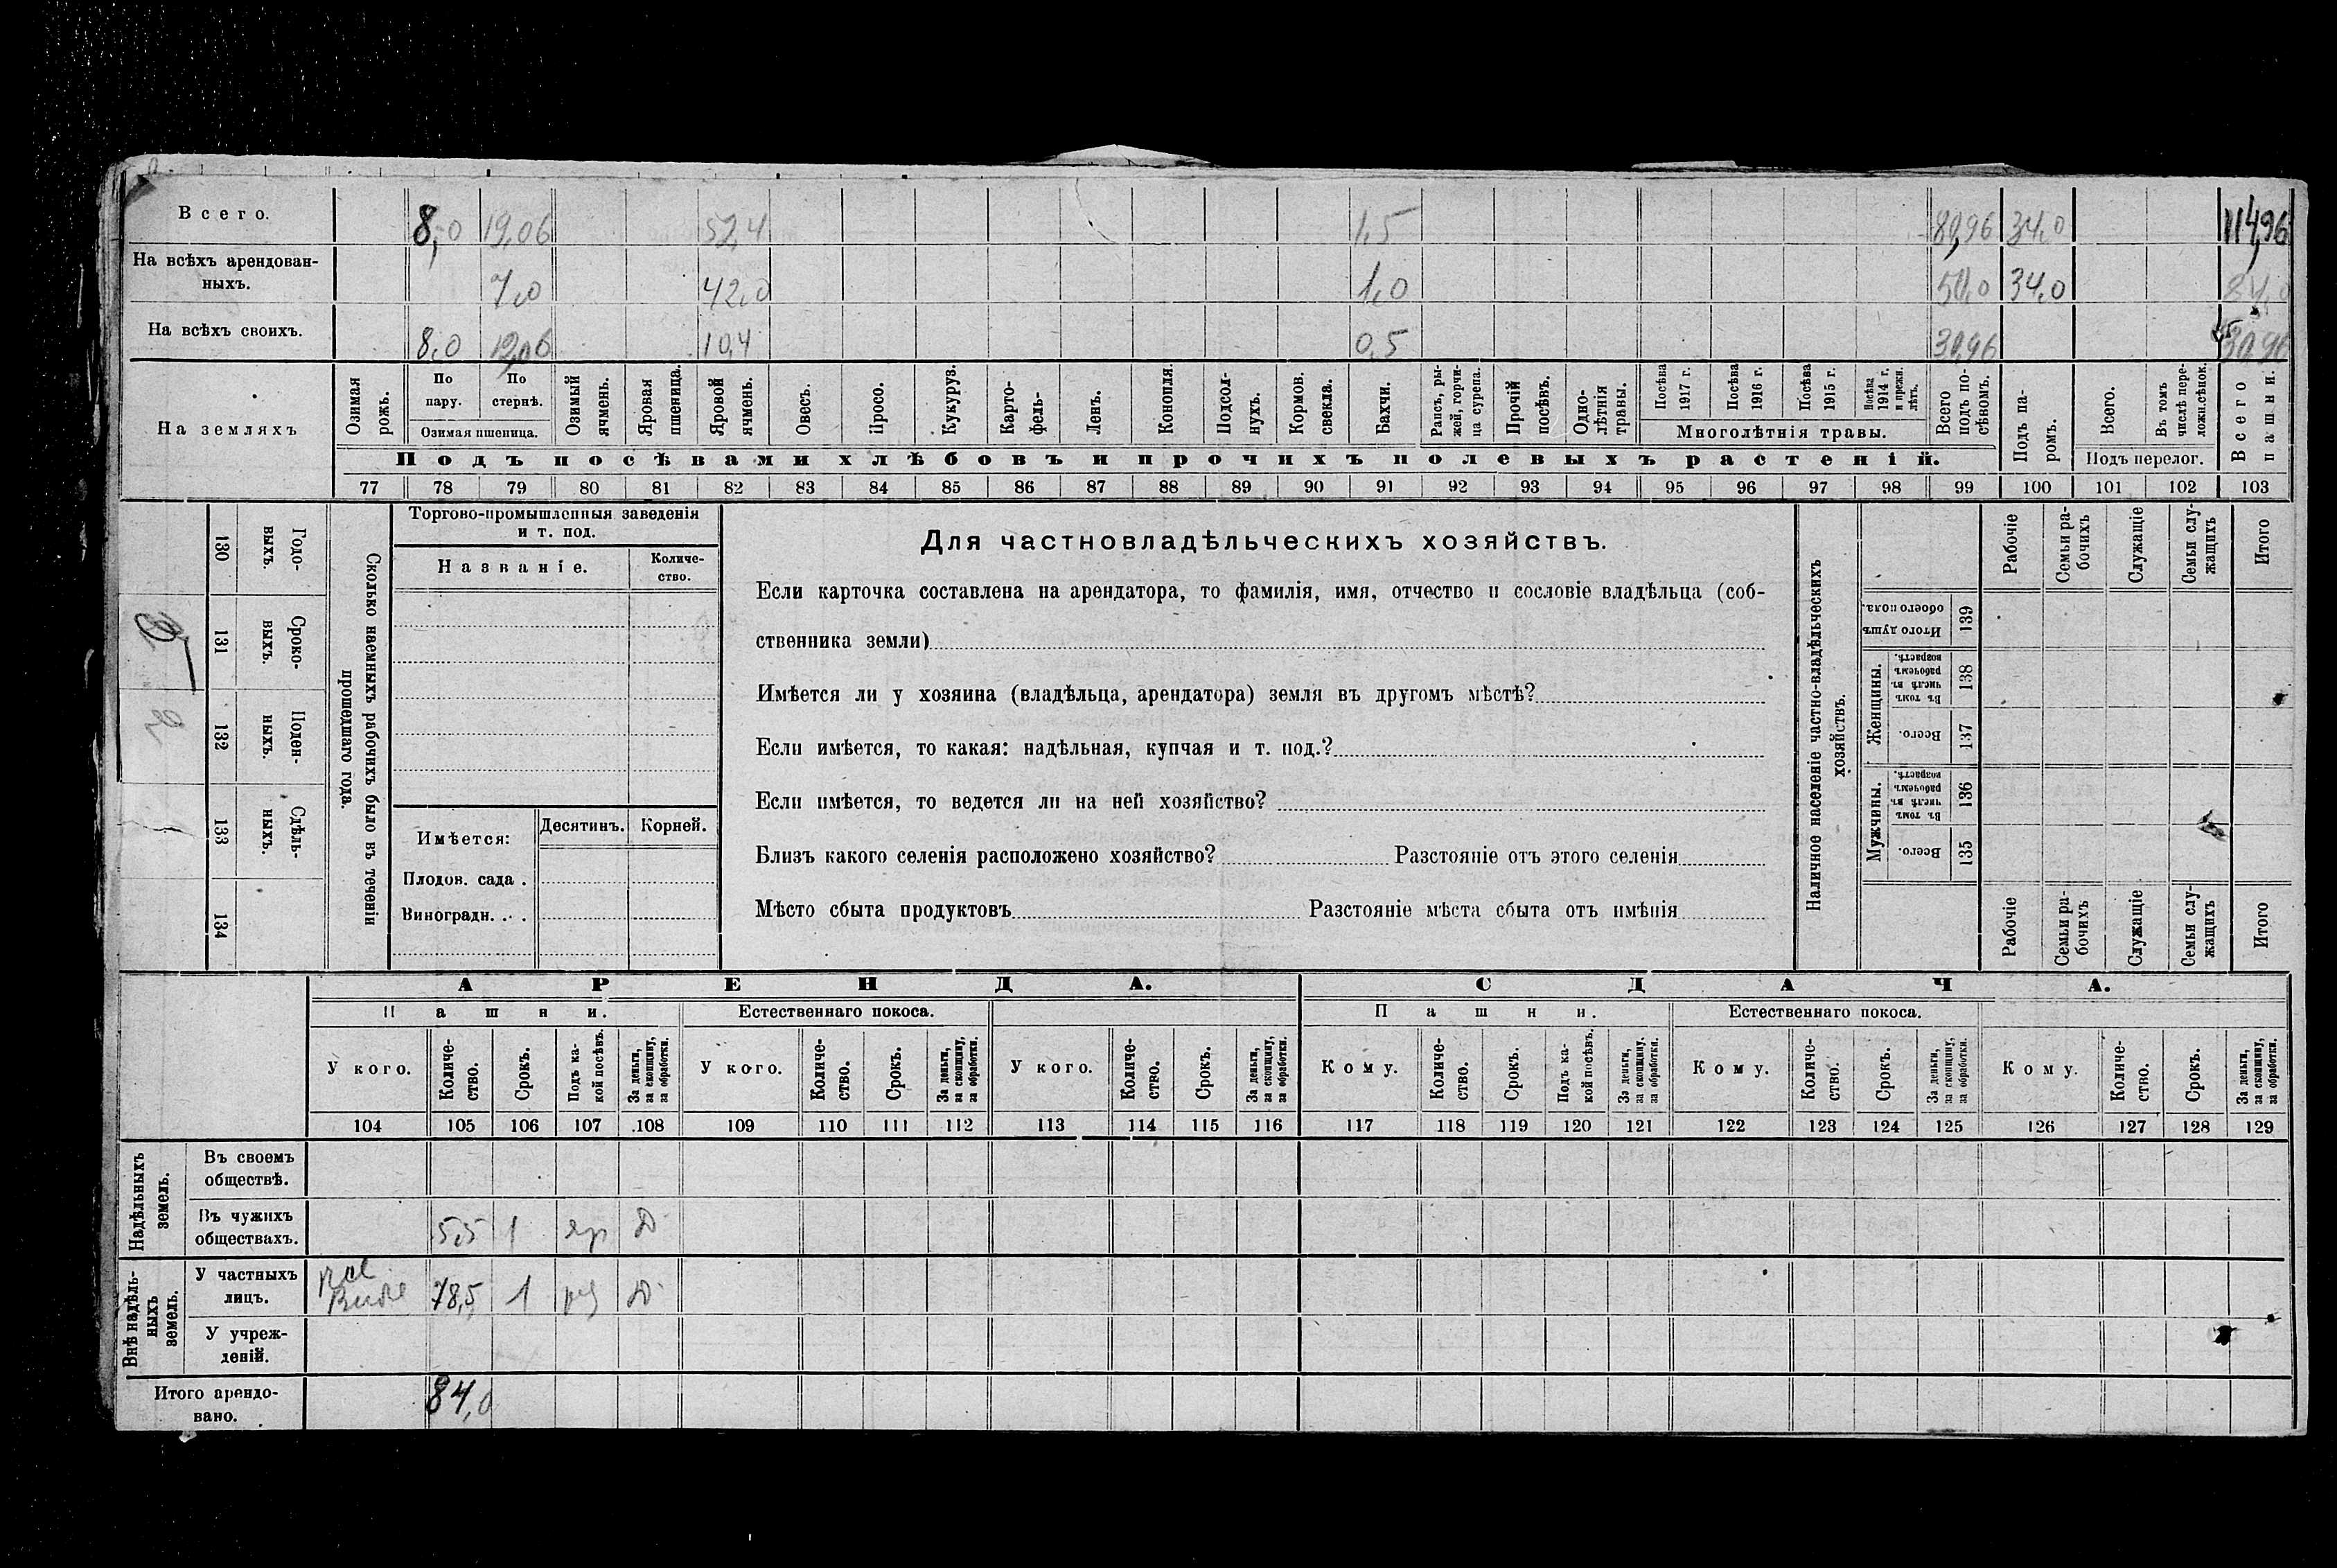 Всего. 8,0 19,06 52,4 1,5 80,96 34,0 114,96
На всѣхъ арендован-
ныхъ. 7,0 42,0 1,0 50,0 34,0 84,0
На всѣхъ своихъ. 8,0 12,06 10,4 0,5 30,96 30,96
На земляхъ
Озимая рожь.
По пару.
По стернѣ.
Озимая пшеница.
Озимый ячмень.
Яровая пшеница.
Яровой ячмень.
Овесъ.
Просо.
Кукуруз.
Карто-
фель-
Ленъ.
Конопля.
Подсол-
нухъ.
Кормов. свекла.
Бахчи.
Рапсъ, ры-
жей, горчи-
ца сурепа.
Прочій посѣвъ.
Одно-
лѣтнія
травы.
Посѣва 1917 г.
Посѣва 1916 г.
Посѣва 1915 г.
Посѣва 1914 г. и прежн. лѣтъ.
Многолѣтнія травы.
Всего подъ по-
сѣвомъ.
Подъ па-
ромъ.
Всего.
Въ томъ числѣ пере-
ложн.сѣнок.
Подъ перелог.
Всего пашни.
Подъ посѣвами хлѣбовъ и прочихъ полевыхъ растеній.
77 78 79 80 81 82 83 84 85 86 87 88 89 90 91 92 93 94 95 96 97 98 99 100 101 102 103
Сколько наемныхъ рабочихъ было въ теченіи
прошедшаго года.
Годо-
выхъ.
130
Сроко-
выхъ.
131
Поден-
ныхъ.
132
Сдѣль-
ныхъ.
133
134
Торгово-промышленныя заведенія
и т. под.
Названіе.
Количе-
ство.
Имѣется: Десятинъ. Корней.
Плодов. сада .
Виноградн. . .
Для частновладѣльческихъ хозяйствъ.
Если карточка составлена на арендатора, то фамилія, имя, отчество и сословіе владѣльца (соб-
ственника земли)
Имѣется ли у хозяина (владѣльца, арендатора) земля въ другомъ мѣстѣ?
Если имѣется, то какая: надѣльная, купчая и т. под.?
Если имѣется, то ведется ли на ней хозяйство?
Близъ какого селенія расположено хозяйство? Разстояніе отъ этого селенія
Мѣсто сбыта продуктовъ Разстояніе мѣста сбыта отъ имѣнія
Наличное населеніе частно-владѣльческихъ
хозяйствъ.
Рабочіе
Семьи ра-
бочихъ
Служащіе
Семьи слу-
жащихъ
Итого
Итого душъ
обоего пола.
139
Женщины.
Въ томъ числѣ въ рабочемъ возрастѣ.
138
Всего.
137
Мужчины.
Въ томъ числѣ въ рабочемъ возрастѣ.
136
Всего.
135
Рабочіе
Семьи ра-
бочихъ
Служащіе
Семьи слу-
жащихъ
Итого
АРЕНДА. СДАЧА.
Пашни. Естественнаго покоса. Пашни. Естественнаго покоса.
У кого.
Количе-
ство.
Срокъ.
Подъ ка-
кой посѣвъ.
За деньги,
за скопщину,
за обработки.
У кого.
Количе-
ство.
Срокъ.
За деньги,
за скопщину,
за обработки.
У кого.
Количе-
ство.
Срокъ.
За деньги,
за скопщину,
за обработки.
Кому.
Количе-
ство.
Срокъ.
Подъ ка-
кой посѣвъ.
За деньги,
за скопщину,
за обработки.
Кому.
Количе-
ство.
Срокъ.
За деньги,
за скопщину,
за обработки.
Кому.
Количе-
ство.
Срокъ.
За деньги,
за скопщину,
за обработки.
104 105 106 107 108 109 110 111 112 113 114 115 116 117 118 119 120 121 122 123 124 125 126 127 128 129
Надѣльныхъ
земель.
Въ своемъ
обществѣ.
Въ чужихъ
обществахъ. 5,5 1 яр Д
Внѣ надѣль-
ныхъ
земель.
У частныхъ
лицъ. 78,5 1 Д
У учреж-
деній.
Итого арендо-
вано. 84,0